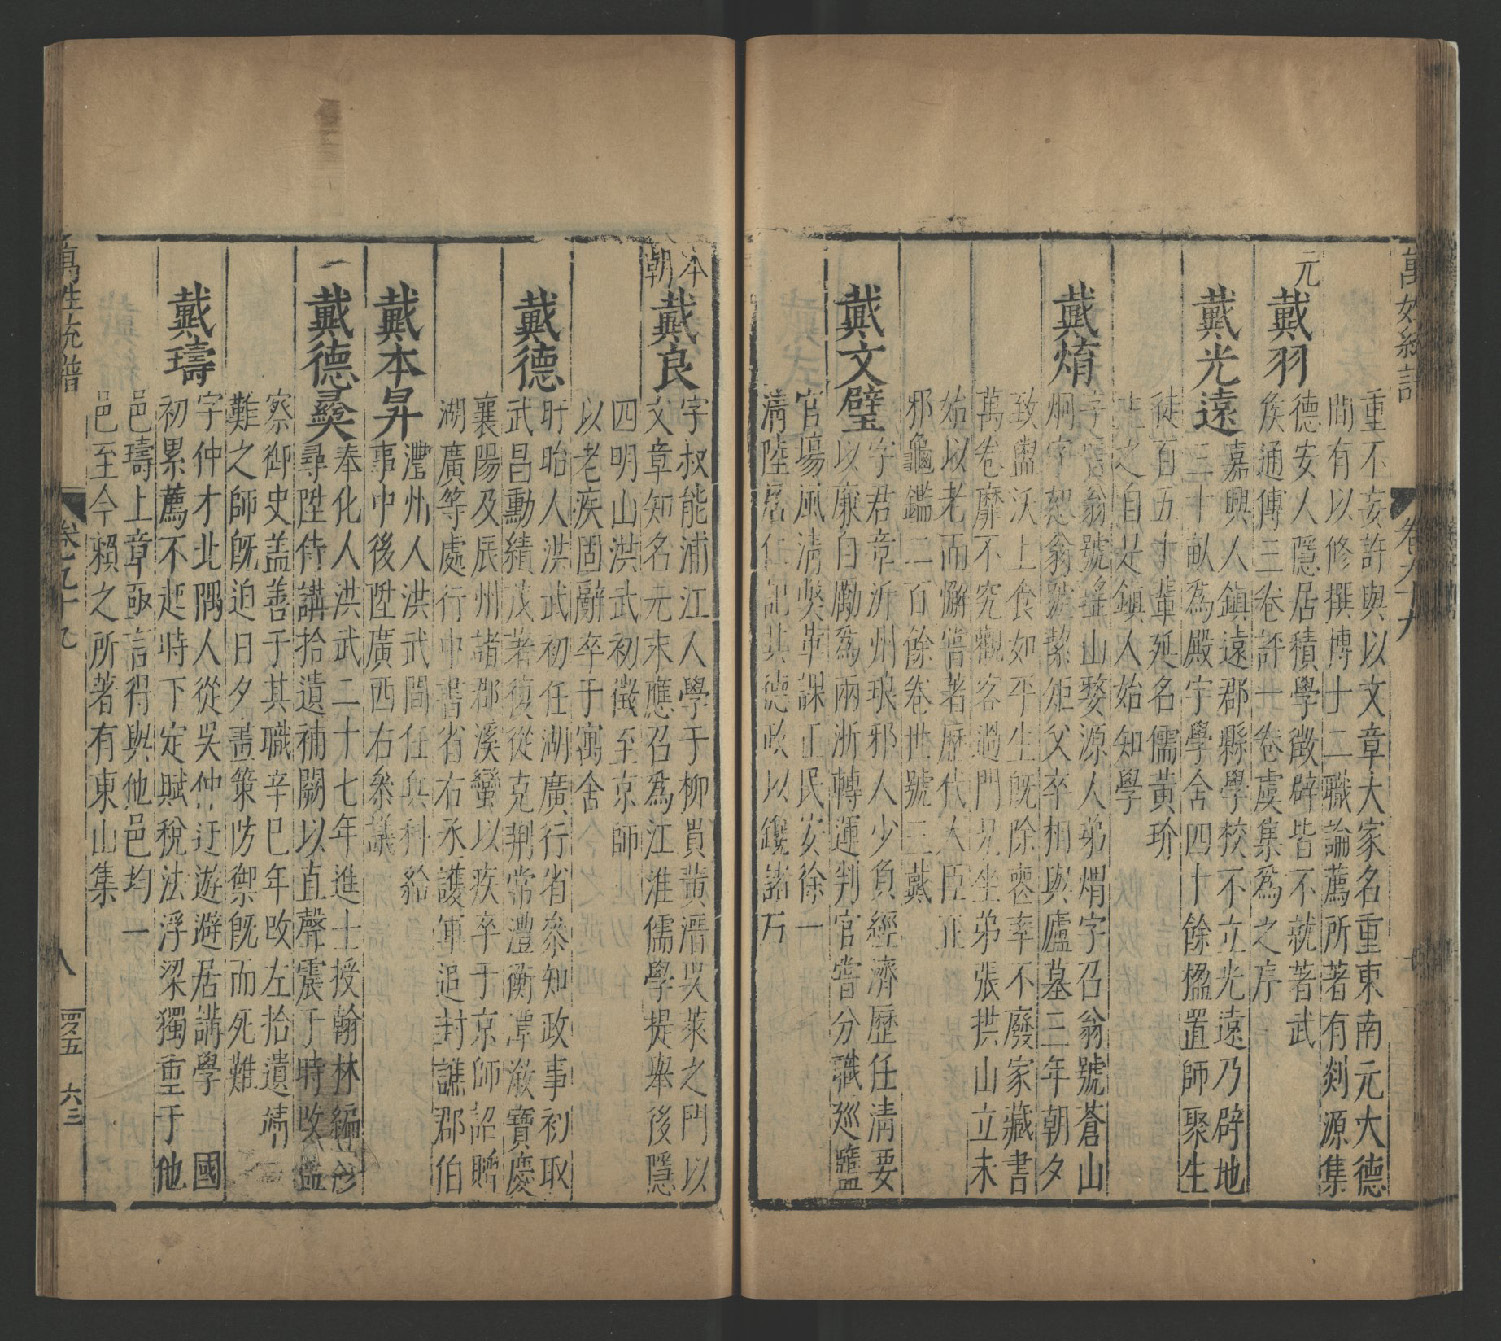 重不妄許與以文章大家名重東南元大德
間有以修撰博士二職論薦所著有剡源集
元
戴羽
德安人隱居積學徵辟皆不就著武
侯通傳三卷評十卷虞集為之序
戴光遠
嘉興人鎮遠郡縣學校不立光遠乃辟地
三十畝為殿宇學舍四十餘楹置師聚生
徒百五十輩延名儒黃玠
主之自是鎮人始知學
戴焴
字 翁號 山婺源人弟焆字召翁號蒼山
炯字恕翁號絜矩父卒相與廬墓三年朝夕
致盥沃上食如平生既除喪幸不廢家藏書
萬卷靡不究觀客過門兄坐弟張拱山立未
始以老而懈嘗著歷代人臣正
邪龜鑑二百餘卷世號三戴
戴文璧
字君章沂州琅邪人少負經濟歷任清要
以廉白勵為兩浙轉運判官嘗分職巡鹽
官場風清獘革課正民安徐一
清陸居仁記其德政以鑱諸石
萬姓統譜
卷九十九
本朝
戴良
字叔能浦江人學于柳貫黃溍吳萊之門以
文章知名元末應召為江淮儒學提舉後隱
四明山洪武初徵至京師
以老疾固辭卒于寓舍
戴德
盱眙人洪武初任湖廣行省參知政事初取
武昌勳績茂著復從克荆常澧衡潭漵寶慶
襄陽及辰州諸郡溪蠻以疾卒于京師詔贈
湖廣等處行中書省右丞護軍追封譙郡伯
戴本昇
澧州人洪武間任兵科給
事中後陞廣西右叅議
戴德彛
奉化人洪武二十七年進士授翰林編修
尋陞侍講拾遺補闕以直聲震于時改監
察御史盖善于其職辛巳年改左拾遺靖
難之師既迫日夕畫策防禦既而死難
戴璹
字仲才北隅人從吳仲迂遊避居講學國
初累薦不起時下定賦稅法浮梁獨重于他
邑璹上章亟言得與他邑均一
邑至今賴之所著有東山集
萬姓統譜
卷之九十九
八
四五
六三